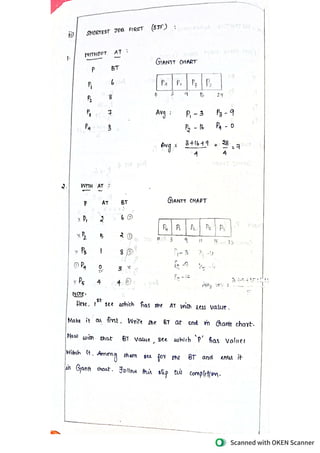 SHORTEST JOB FIRST (STF) :
1. WITHOUT AT :
GANTT CHART
P BT
P1 6
P2 8
P3 7
P4 3
P4 P1 P3 P2
0 3 9 16 24
Avg : P1 - 3 P3 - 9
P2 - 16 P4 - 0
Avg = 3+16+9 / 4 = 28 / 4
2. WITH AT :
GANTT CHART
P AT BT
P1 2 6
P2 5 2
P3 1 8
P4 0 3
P5 4 4
Note:
Here, 1st see which has the AT with less value.
Make it as first. Write the BT at end in Gantt chart.
Now with that BT value, see which 'P' has value
Within it. Among them see for the BT and
in Gantt chart. Follow this step till completion.
Scanned with OKEN Scanner